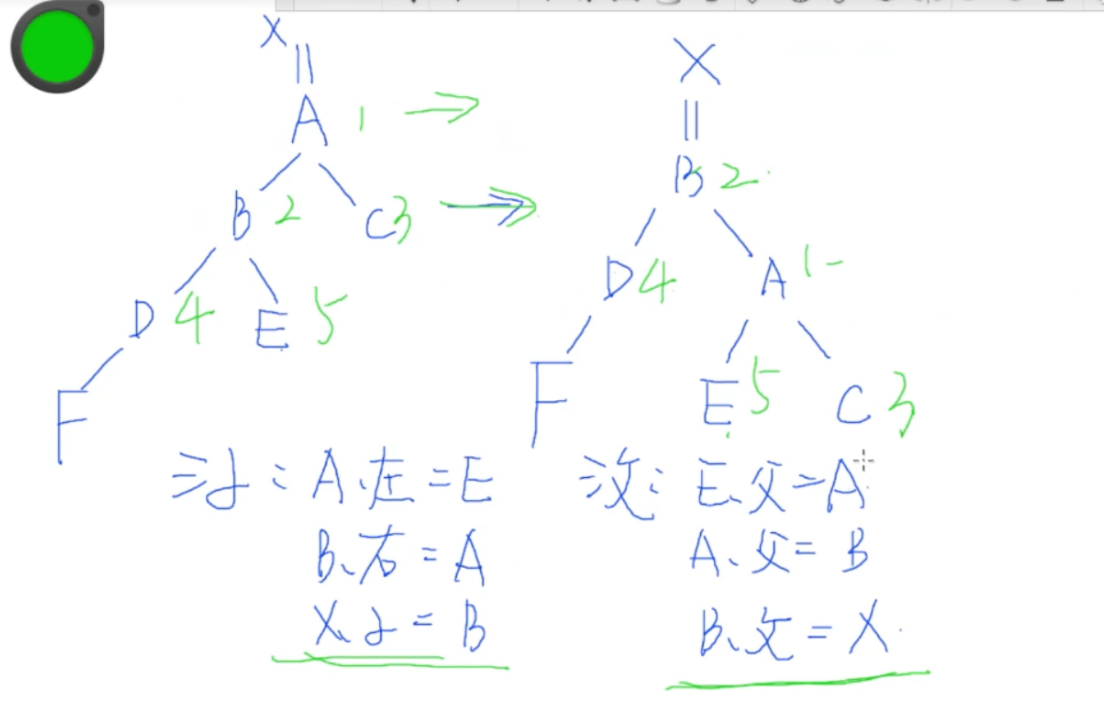 X
A 1
B 2 C 3
D 4 E 5
F
X
B 2
D 4 A 1
F E 5 C 3
三子: A.左=E
B.右=A
X.子=B
三父: E.父=A
A.父=B
B.父=X